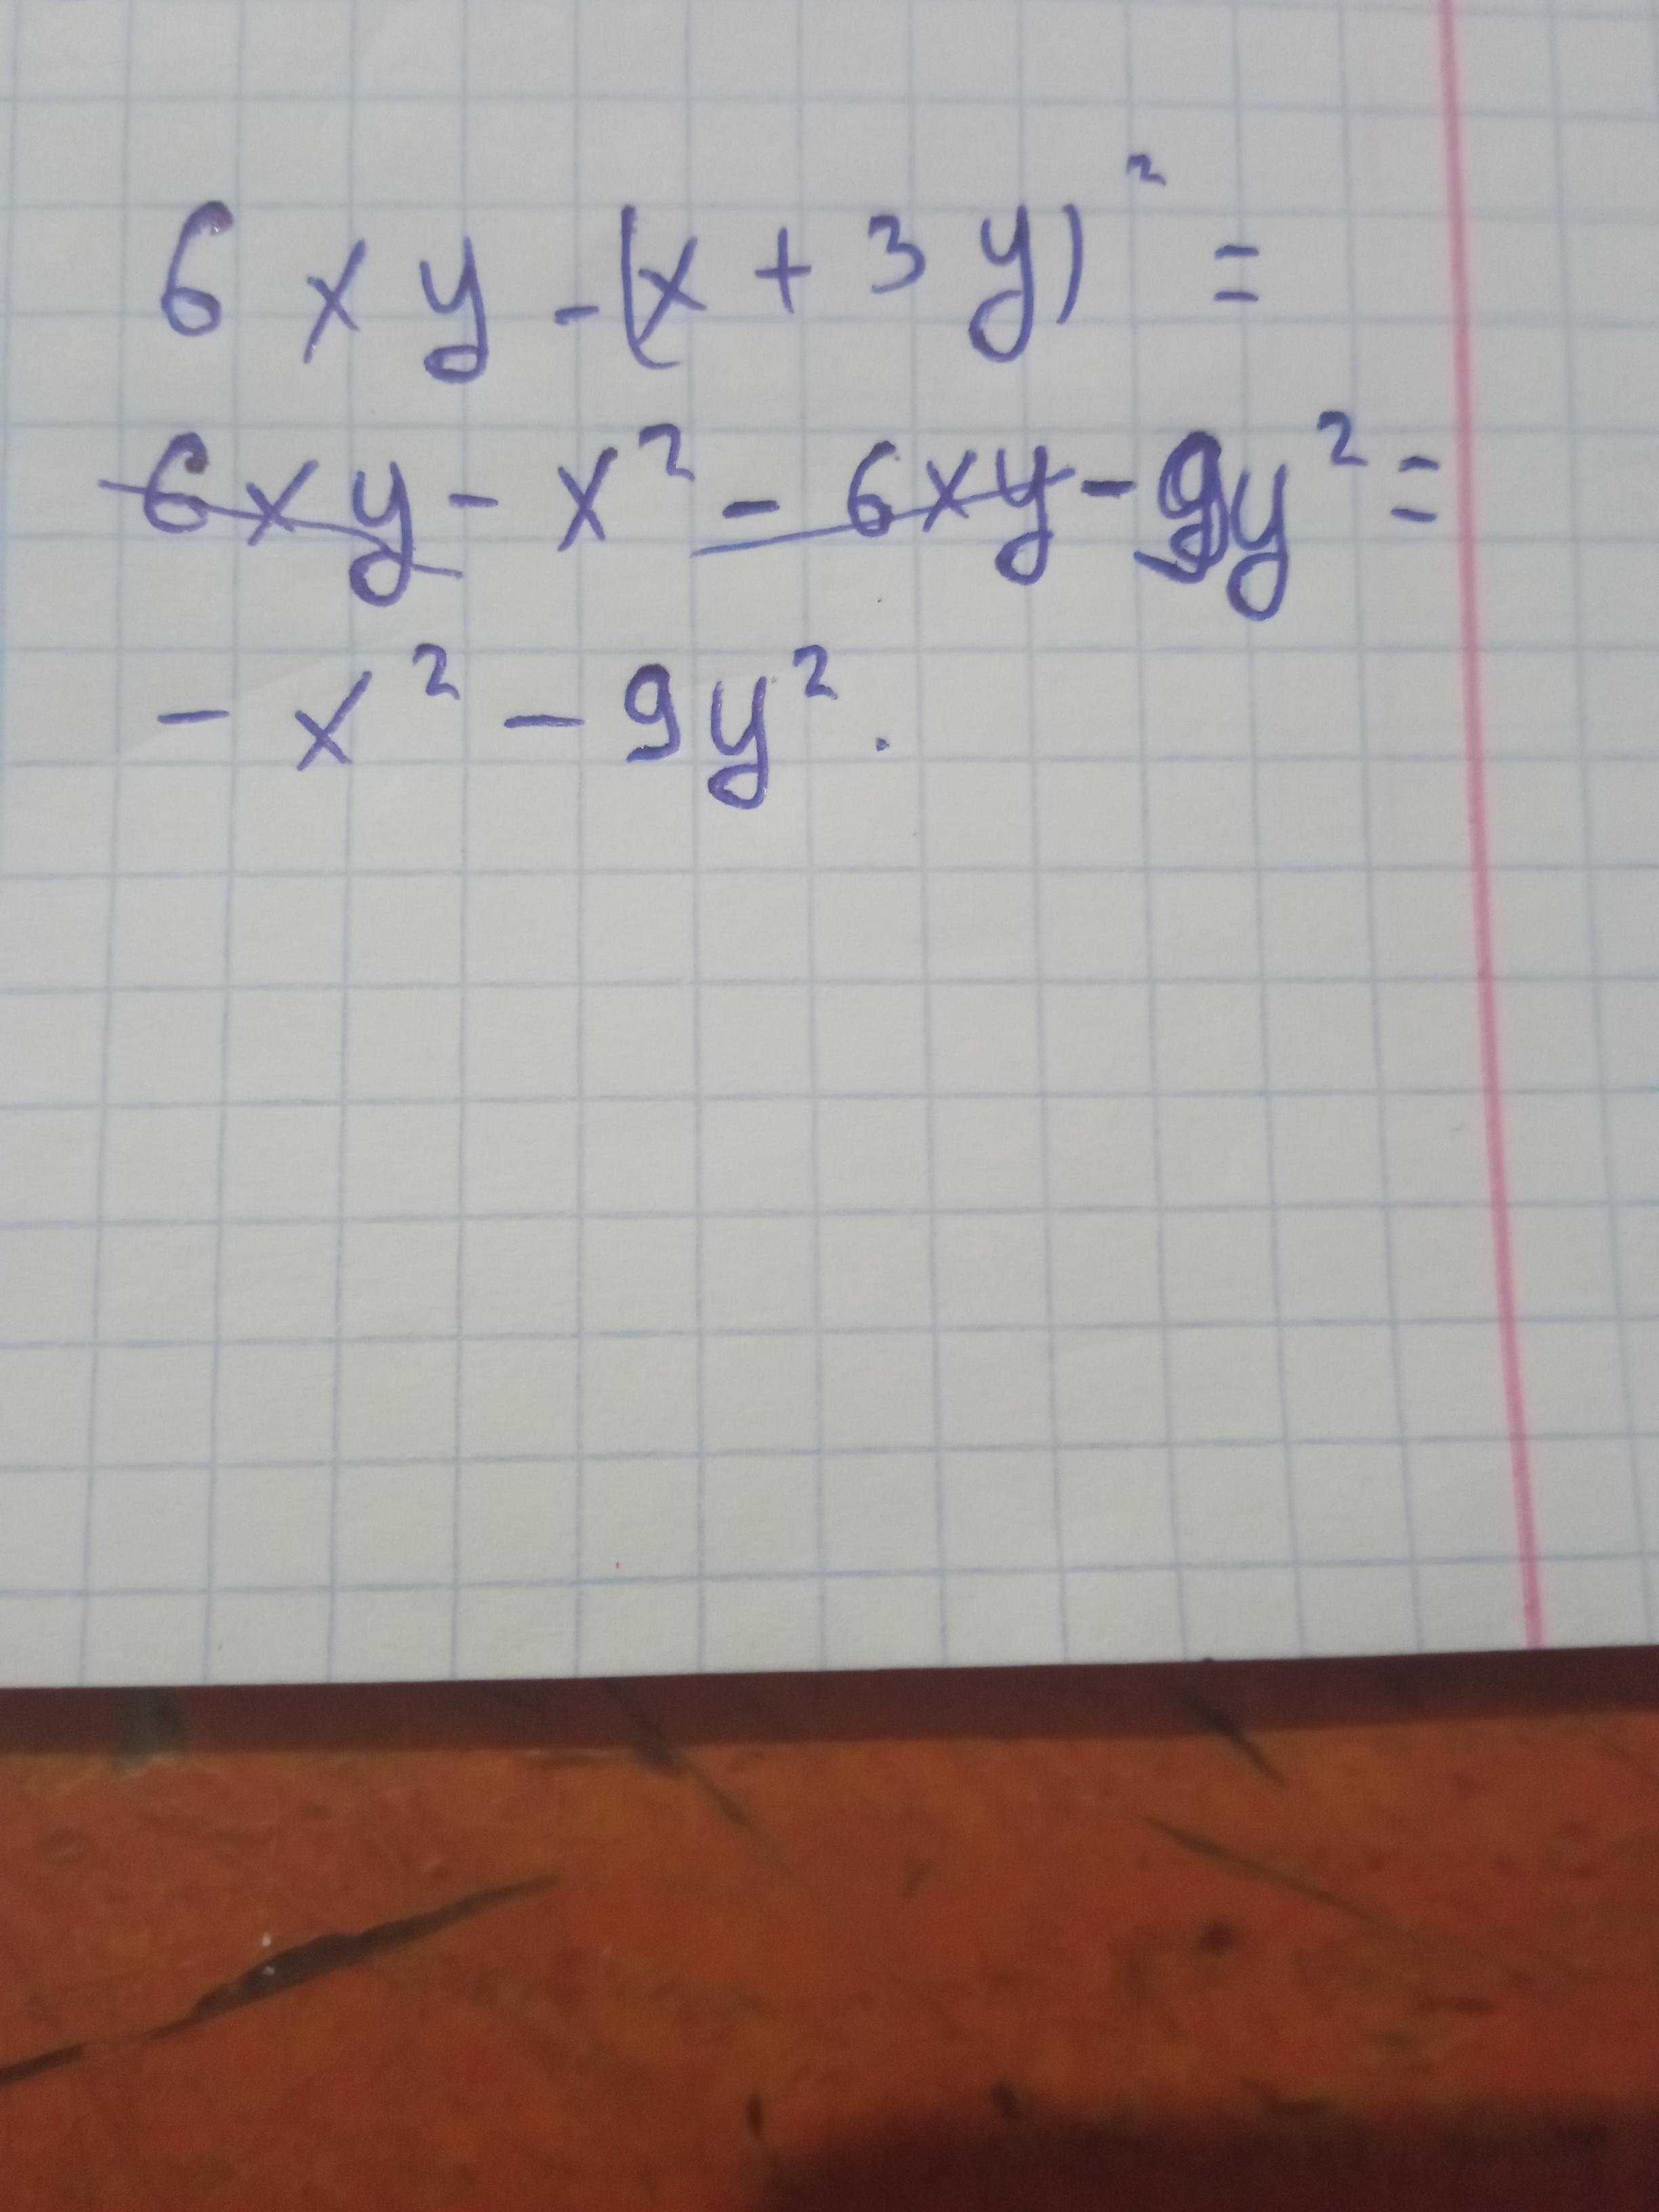 6xy-(x+3y)²=
6xy-x²-6xy-9y²=
-x²-9y².